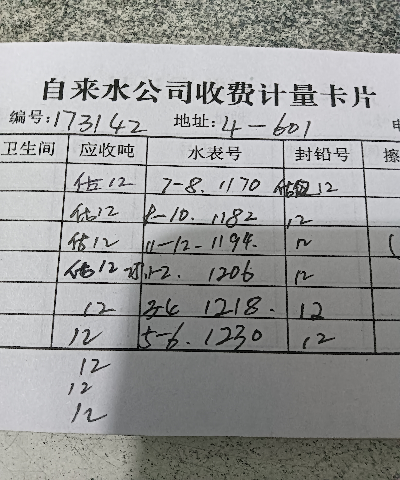 自来水公司收费计量卡片
编号:173142 地址:4-601
卫生间 应收吨 水表号 封铅号 擦
估12 7-8. 1170 12
估12 8-10. 1182 12
估12 11-12-1194. 12
估12 1-2. 1206 12
12 3-4 1218. 12
12 5-6. 1230 12
12
12
12